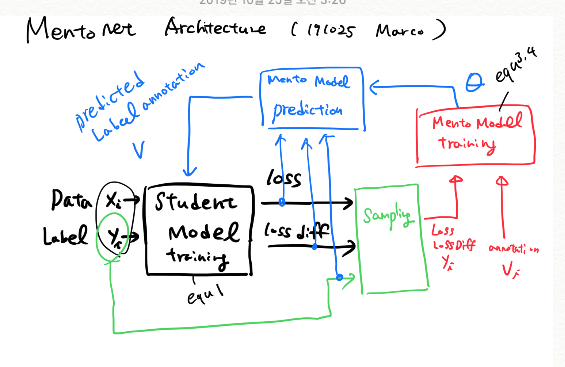 Mentonet Architecture (191025 Marco)
predicted
Label annotation
V
Mento Model
prediction
θ
equ3.4
Mento Model
training
Data Xi
Label Yi
Student
Model
training
equ1
loss
loss diff
Sampling
Loss
LossDiff
Yj
annotation
Vj